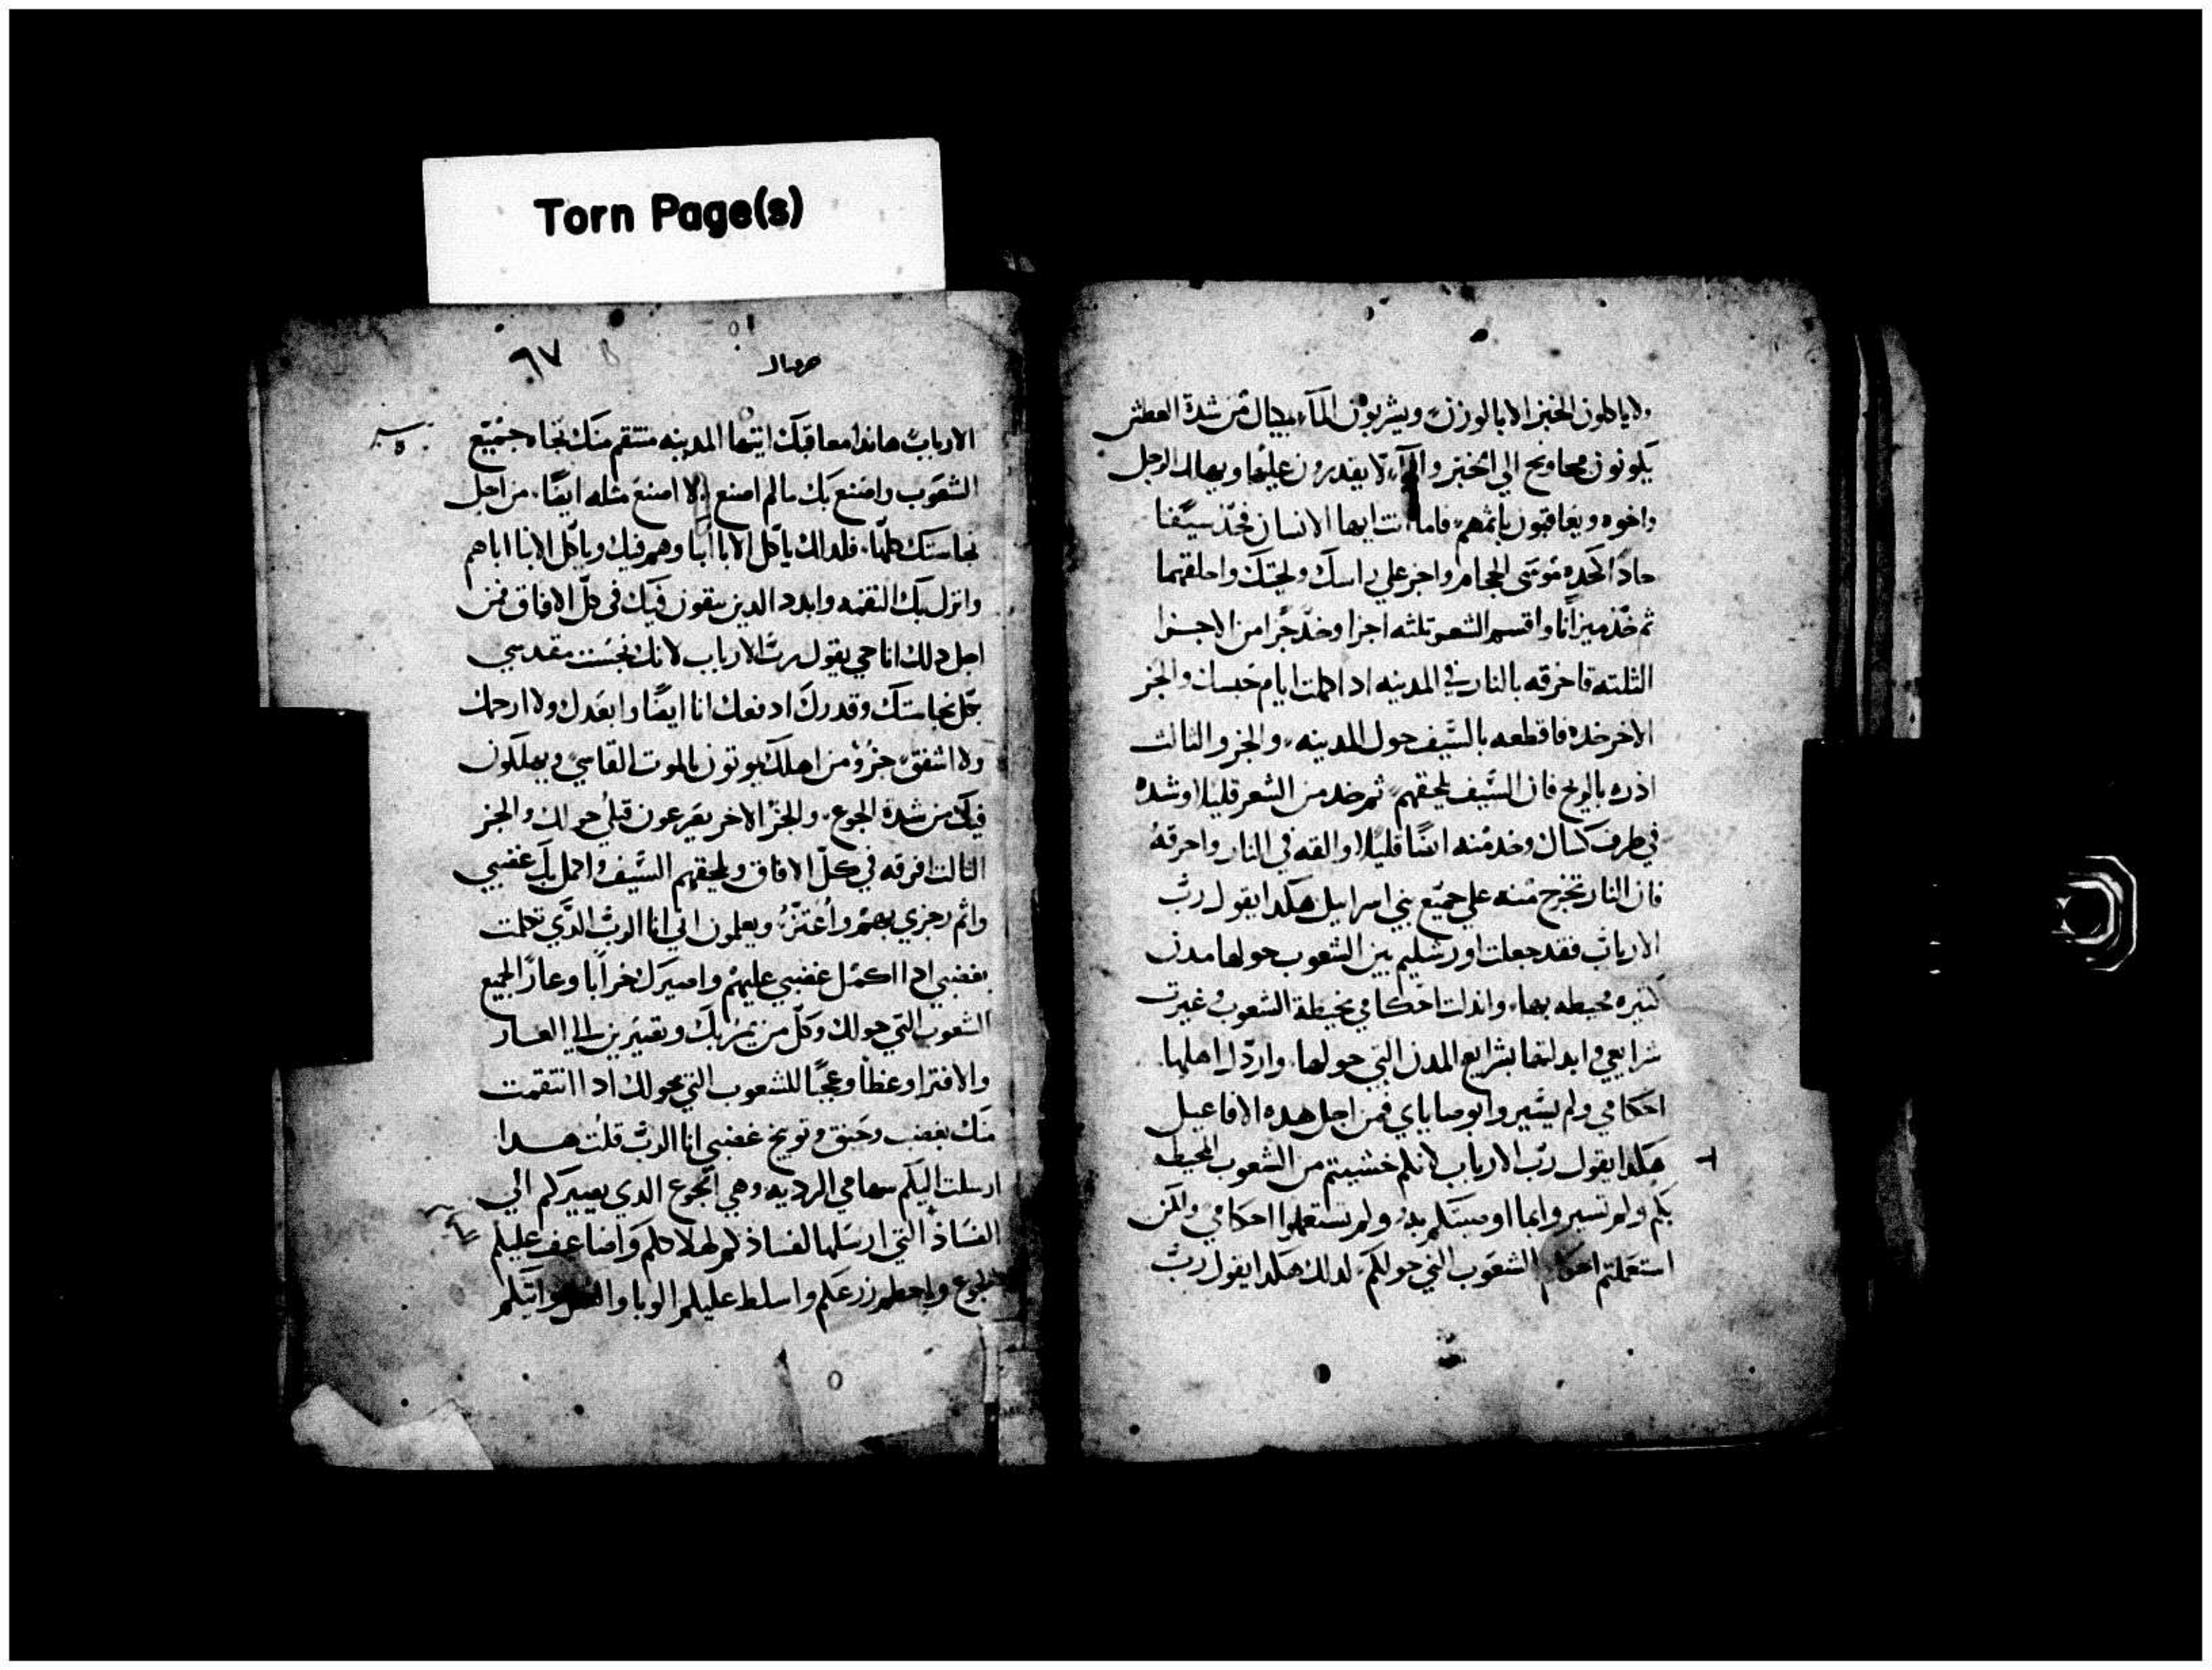 Torn Page(s)
ولا ياكلون الخبز الا بالوزن ويشربون المآء بكيال من شدة العطش
يكونون محاويج الي الخبز والمآء لا يقدرون عليها ويهالك الرجل
واخوه ويعاقبون باثمهم فاما انت ايها الانسان فخد سيفا
حادا كحده موسى الحجام واجز علي راسك ولحيتك واحلقهما
ثم خذ ميزانا واقسم الشعر تلثه اجزا وخذ جزا من الاجزا
الثلثه فاحرقه بالنار في المدينه ادا كملت ايام حبسك والجز
الاخر خده فاقطعه بالسيف حول المدينه والجزو الثالث
ادره بالريح فان السيف يلحقهم ثم خد من الشعر قليلا وشده
في طرف كساك وخد منه ايضا قليلا والقه في النار واحرقه
فان النار تخرج منه علي جميع بني اسراييل هكدا يقول رب
الارباب فقد جعلت اورشليم بين الشعوب حولها مدن
كثيره محيطه بها وابدلت احكامي بخيطة الشعوب وغيرت
شرايعي وابدلتها بشرايع المدن التي حولها وارذل اهلها
احكامي ولم يسيروا بوصاياي فمن اجل هده الافاعيل
هكدا يقول رب الارباب لانكم خشيتم من الشعوب المحيطه
بكم ولم تسيروا بما اوصيتكم به ولم تستعملوا احكامي ولكن
استعملتم احكام الشعوب التي حولكم لدلك هكدا يقول رب
حزقيال
٦٧
الارباب هاندا معاقبك ايتها المدينه منتقم منك تجاه جميع
الشعوب واصنع بك ما لم اصنع ولا اصنع مثله ايضا من اجل
نجاستك كلها فلدلك ياكل الابا ابنا وهم فيك وياكل الابنا اباهم
وانزل بك النقمه وابدد الدين يبقون فيك في كل الافاق فمن
اجل دلك انا حي يقول رب الارباب لانك نجست مقدسي
بكل نجاستك وقدرك ادفعك انا ايضا وابعدك ولا ارحمك
ولا اشفق جزو من اهلك يموتون بالموت القاسي ويهلكون
فيك من شدة الجوع والجز الاخر يصرعون قتلي حولك والجز
الثالت افرقه في كل الافاق ويلحقهم السيف واكمل بك غضبي
واتم رجزي بهم واعتز ويعلمون اني انا الرب الدي تكلمت
بغضبي ادا اكمل غضبي عليهم واصيرك خرابا وعارا لجميع
الشعوب التي حولك وكل من يمر بك وتصيرين الي العار
والافترا وعظا وعجبا للشعوب التي حولك ادا انتقمت
منك بغضب وحنق وتوبيخ غضبي انا الرب قلت هدا
ارسلت اليكم سهامي الرديه وهي الجوع الدي يصيركم الي
الفساد التي ارسلها لفسادكم لهلاككم واضاعف عليكم
الجوع واحطم زرعكم واسلط عليكم الوبا